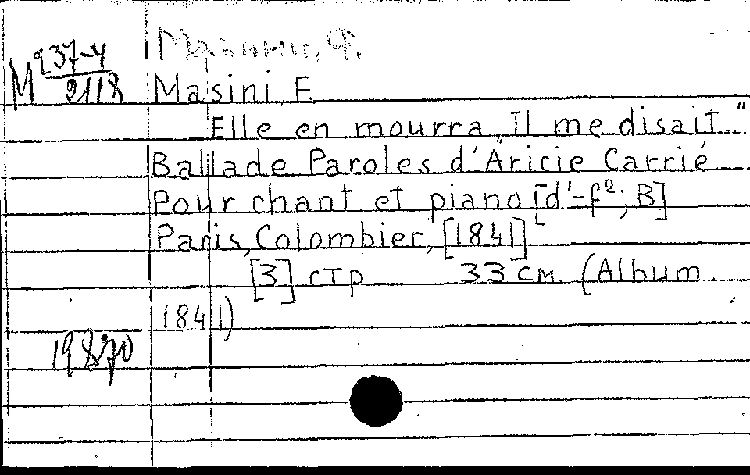 Мазини, Ф.
М 937-4/2118
Masini, F.
Elle en mourra „Il me disait..."
Ballade Paroles d'Aricie Carrié
Pour chant et piano [d¹-f²; B]
Paris, Colombier, [1841]
[3] стр 33 см. (Album
1841)
19870